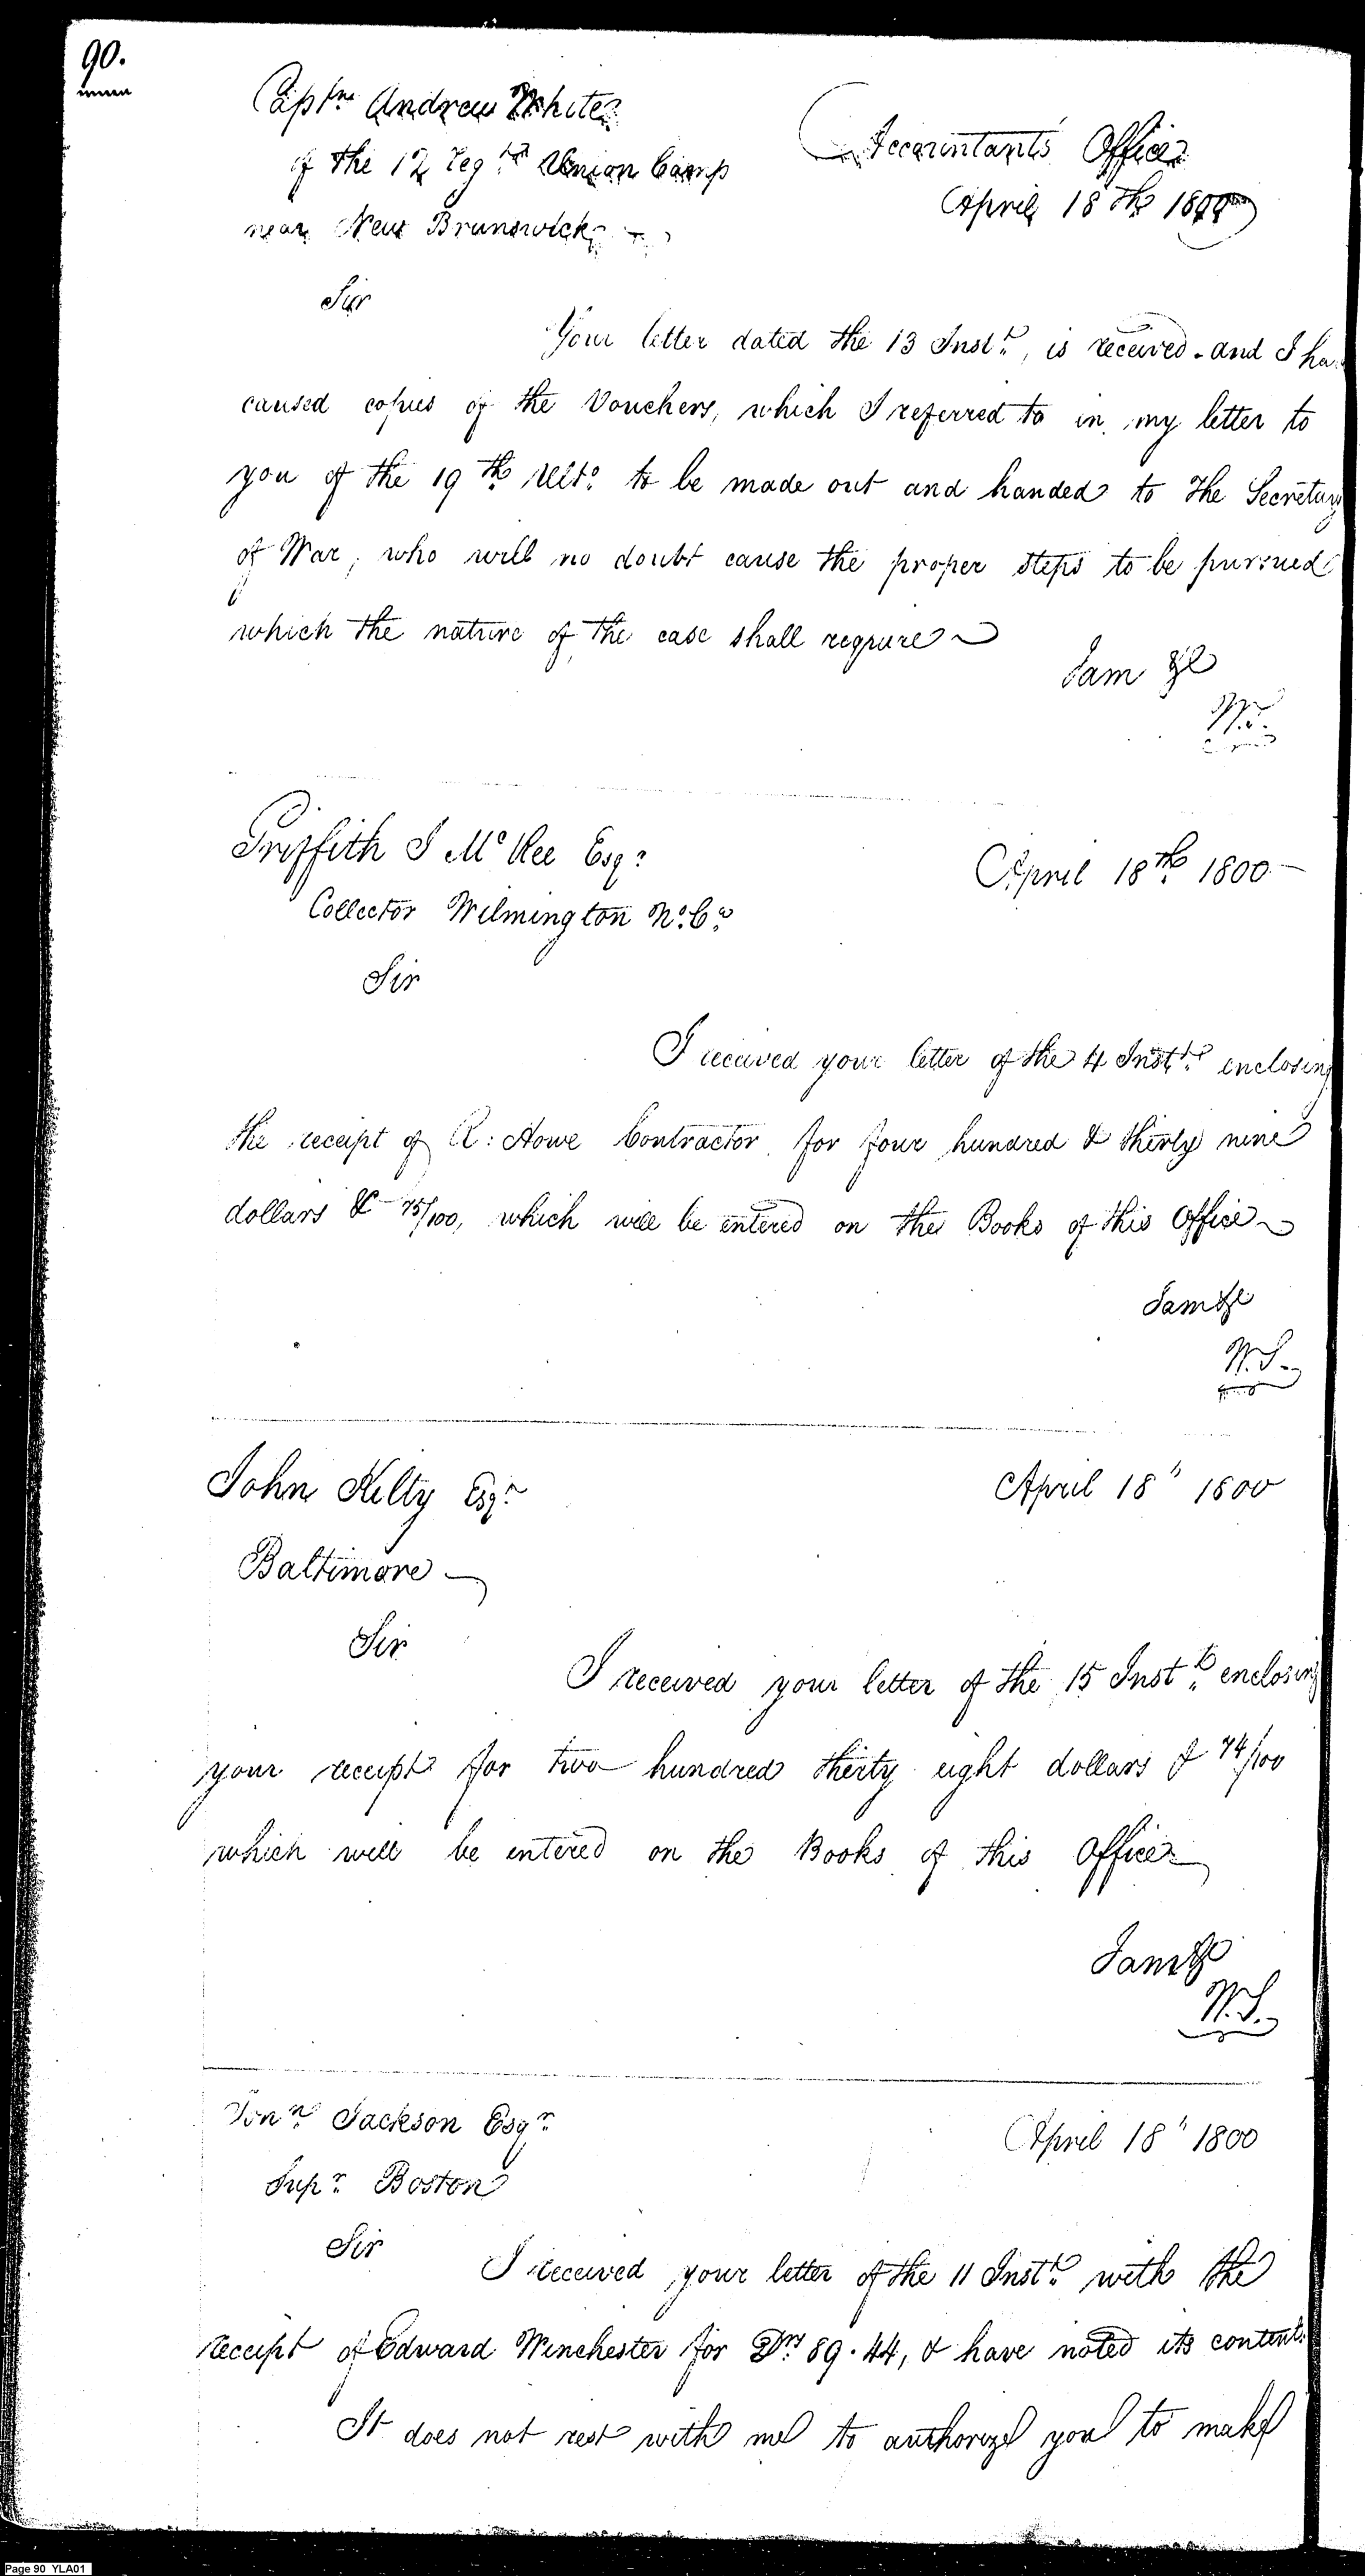 90.
Captn. Andrew White
of the 12 regt. Union Camp
near New Brunswick
Accountants Office
April 18th 1800
Sir
Your letter dated the 13 Instt., is received - and I ha
caused copies of the Vouchers, which I referred to in my letter to
you of the 19th Ulto. to be made out and handed to the Secretary
of War, who will no doubt cause the proper steps to be pursued
which the nature of the case shall require
I am &c
W.
Griffith J McRee Esqr.
April 18th 1800
Collector Wilmington No. Ca.
Sir
I received your letter of the 4 Instt. enclosing
the receipt of R: Howe Contractor for four hundred & thirty nine
dollars & 75/100, which will be entered on the Books of this Office
I am &c
W.S.
John Kilty Esqr.
April 18th 1800
Baltimore
Sir
I received your letter of the 15 Instt. enclosing
your receipt for two hundred thirty eight dollars & 74/100
which will be entered on the Books of this Office
I am &c
W.S.
Jonn. Jackson Esqr.
April 18th 1800
Supr. Boston
Sir
I received your letter of the 11 Instt. with the
receipt of Edward Winchester for Drs 89.44, & have noted its contents
It does not rest with me to authorize you to make
Page 90 YLA01